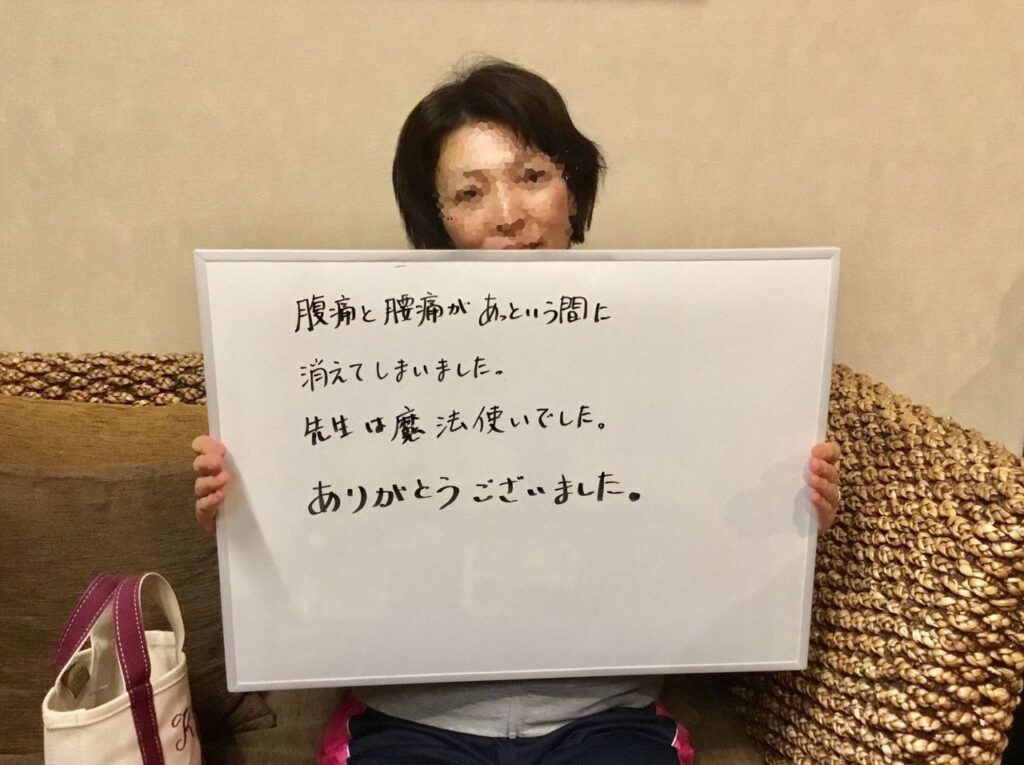 腹痛と腰痛があっという間に
消えてしまいました。
先生は魔法使いでした。
ありがとうございました。
K